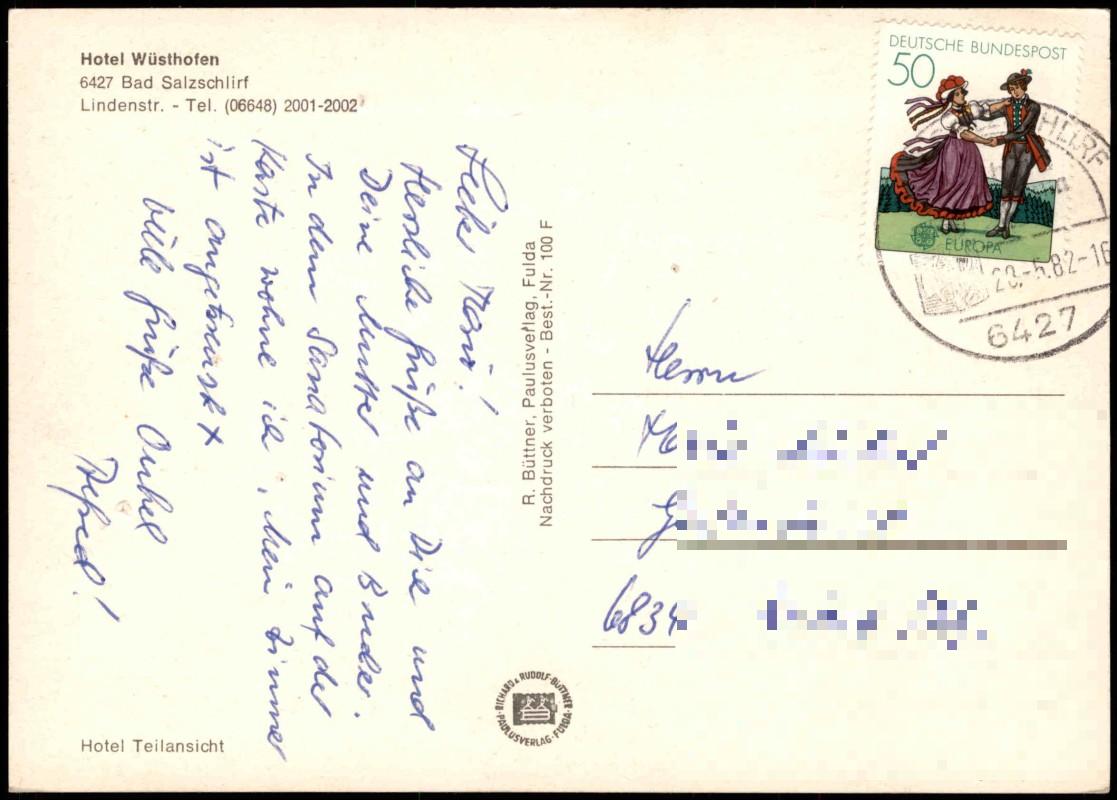 Hotel Wüsthofen
6427 Bad Salzschlirf
Lindenstr. - Tel. (06648) 2001-2002
Lieber Mario!
Herzliche Grüße an Dich und
Deine Mutter und Bruder.
In dem Sanatorium auf der
Karte wohne ich, Mein Zimmer
ist angekreuzt x
Viele Grüße Onkel
Alfred!
Hotel Teilansicht
R. Büttner, Paulusverlag, Fulda
Nachdruck verboten - Best.-Nr. 100 F
RICHARD & RUDOLF BÜTTNER
PAULUSVERLAG · FULDA
DEUTSCHE BUNDESPOST
50
EUROPA
-5.82-16
6427
Herrn
6834